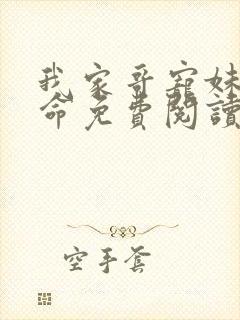 我家哥寵妹
命免費閱讀
空手套